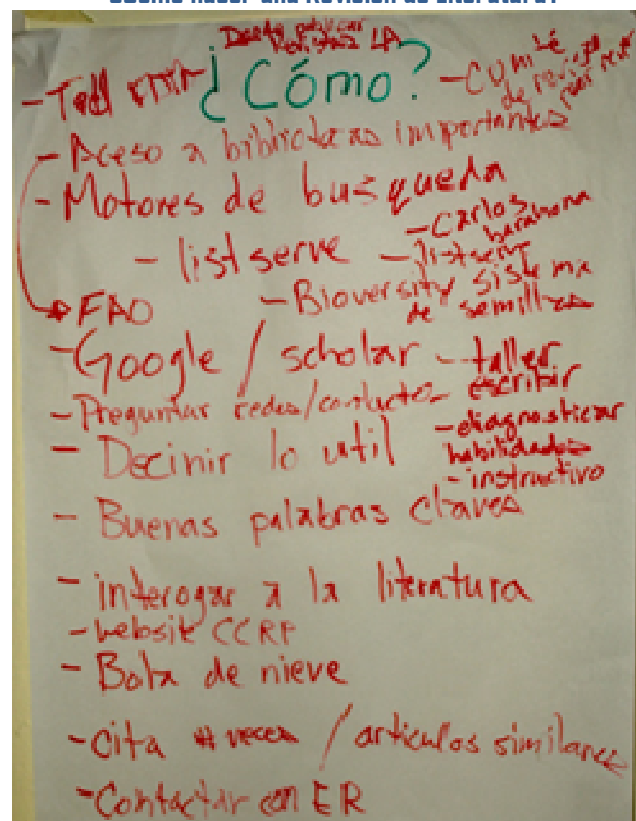 ¿Cómo hacer una Revisión de Literatura?
Donde publicar
Revistas LA
¿Cómo?
- Comité
de revisión
peer review
- Aceso a bibliotecas importantes
- Motores de busqueda
- list serve
- Carlos
barahona
- listserv
- Bioversity sistema
de semillas
FAO
- Google / scholar
- taller
escribir
- Preguntar redes/contactos
- diagnosticar
habilidades
- instructivo
- Decinir lo util
- Buenas palabras claves
- interogar a la literatura
- website CCRP
- Bola de nieve
- cita # veces / articulos similares
- Contactar con ER